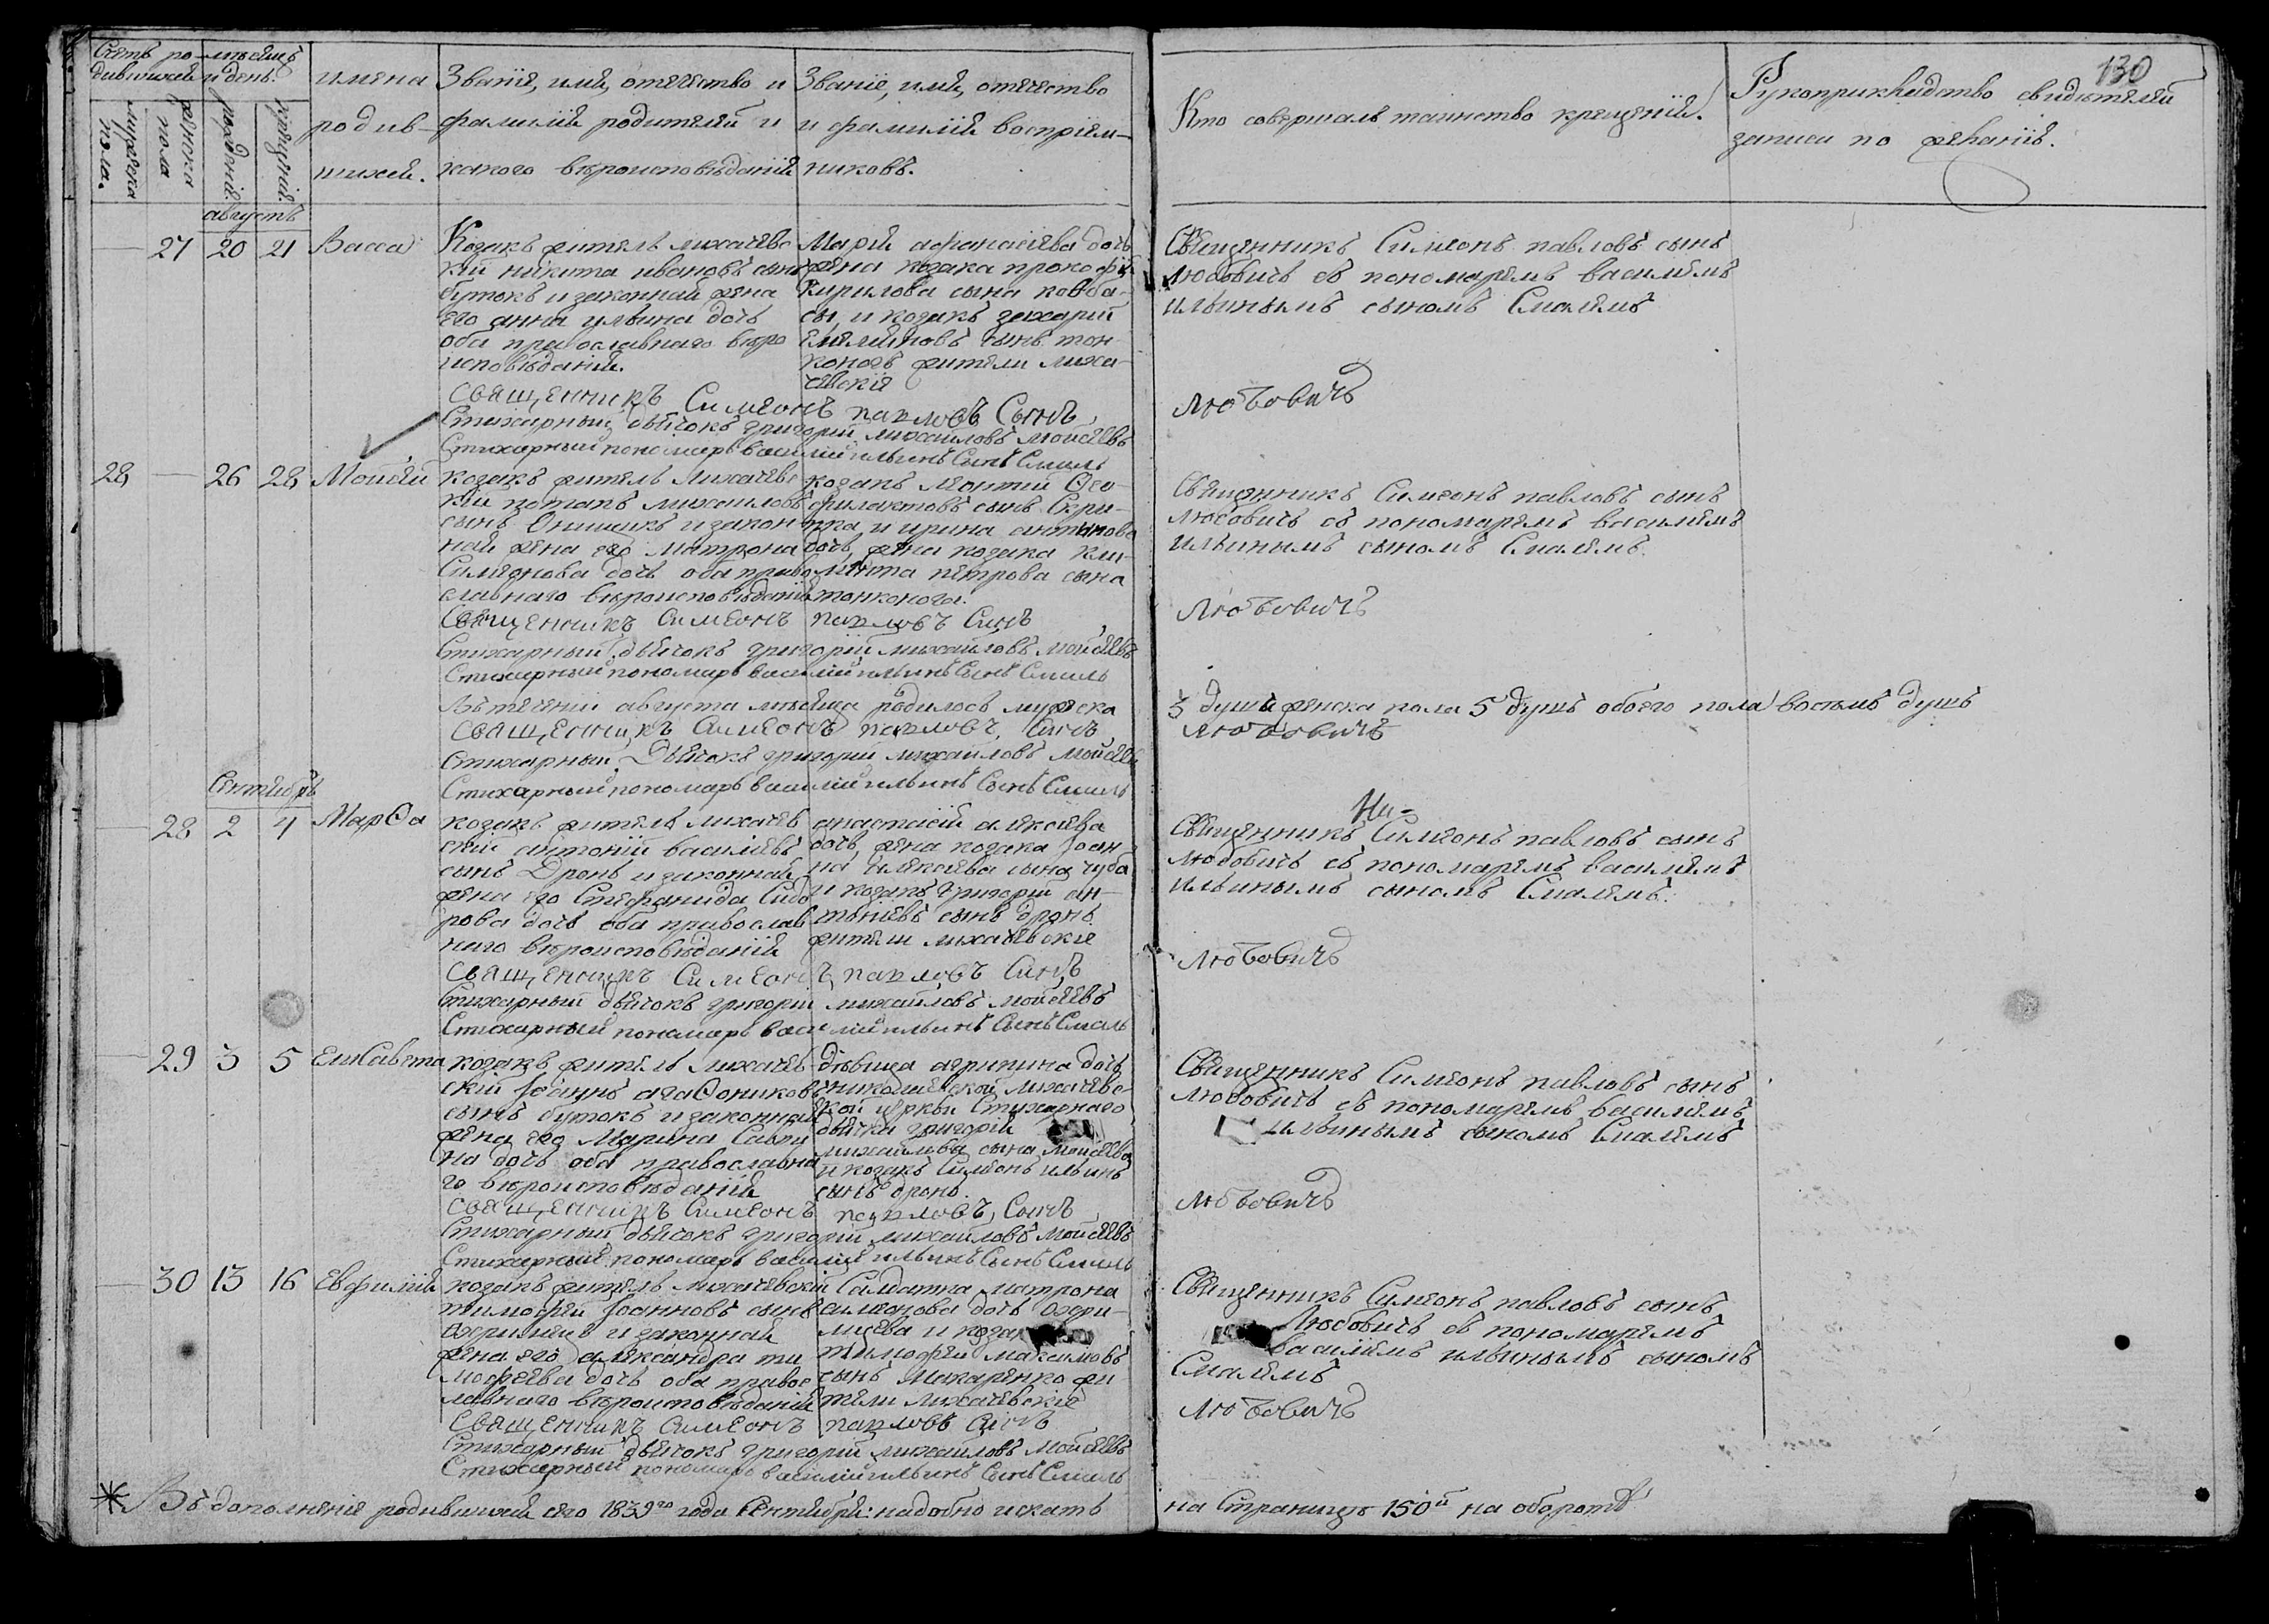 130
Счетъ ро- мѣсяцъ
дившихся и день.
мужеска пола.
женска пола
рожденія.
крещенія.
имена
родив-
шихся.
Званіе, имя, отечество и
фамилія родителей и
какого вѣроисповѣданія
Званіе, имя, отечество
и фамилія воспріем-
никовъ.
Кто совершалъ таинство крещенія.
Рукоприкладство свидѣтелей
записи по желанію.
августъ
27 20 21 Васса
Козакъ житель лихачевс
кій никита ивановъ сынъ
бутокъ и законная жена
его анна ильина дочь
оба православнаго вѣро
исповѣданія.
Марія афанасіева дочь
жена козака прокофія
Кирилова сына ковба-
сы, и козакъ захарій
Емеліяновъ сынъ тон-
коногъ жители лиха-
чевскіе
Священникъ Симеонъ павловъ сынъ
любовичъ съ пономаремъ василіемъ
ильинымъ сыномъ Смалемъ
Священникъ Симеонъ павловъ Сынъ
Любовичъ
Стихарный дьячокъ григорій михайловъ мойсеевъ
Стихарный пономарь василій ильинъ Сынъ Смаль
28 — 26 28 Мойсей
козакъ житель Лихачевс
кій потапъ михаиловъ
сынъ Онищикъ и закон
ная жена его Матрона
Симеонова дочь оба право
славнаго вѣроисповѣданія
козакъ леонтій Ѳео-
филактовъ сынъ Скри-
пка, и ирина антонова
дочь, жена козака кли-
мента петрова сына
тонконога.
Священникъ Симеонъ павловъ сынъ
любовичъ съ пономаремъ василіемъ
ильинымъ сыномъ Смалемъ.
Священникъ Симеонъ павловъ Сынъ
Любовичъ
Стихарный дьячокъ григорій михайловъ мойсеевъ
Стихарный пономарь василій ильинъ Сынъ Смаль
Въ теченіи августа мѣсяца родилось мужеска
3 души женска пола 5 душъ обоего пола восемъ душъ
Священникъ Симеонъ павловъ Сынъ
Любовичъ
Стихарный Дьячокъ григорій михайловъ мойсеевъ
Стихарный пономарь василій ильинъ Сынъ Смаль
Сентябрь
— 28 2 4 Марѳа
козакъ житель лихачев
скій антоній василіевъ
сынъ Дронь и законная
жена его Стефанида Сидо
рова дочь оба православ
наго вѣроисповѣданія
анастасія алексіева
дочь, жена козака Іоан
на алексіева сына чуба
и козакъ григорій ан-
тоніевъ сынъ дронь
жители лихачевскіе
Ни=
Священникъ Симеонъ павловъ сынъ
любовичъ съ пономаремъ василіемъ
ильинымъ сыномъ Смалемъ.
Священникъ Симеонъ павловъ Сынъ
Любовичъ
Стихарный дьячокъ григорій михайловъ мойсеевъ
Стихарный пономарь василій ильинъ Сынъ Смаль
— 29 3 5 Елисавета
козакъ житель лихачев
скій Іоаннъ агаѳониковъ
сынъ бутокъ и законная
жена его Марина Савви
на дочь оба православна
го вѣроисповѣданія
дѣвица агрипина дочь
николаевской лихачевс
кой церкви Стихарнаго
дьячка григорія
михайлова сына мойсеева
и козакъ Симеонъ ильинъ
сынъ дронь.
Священникъ Симеонъ павловъ сынъ
любовичъ съ пономаремъ василіемъ
ильинымъ сыномъ Смалемъ
Священникъ Симеонъ павловъ Сынъ
Любовичъ
Стихарный дьячокъ григорій михайловъ мойсеевъ
Стихарный пономарь василій ильинъ Сынъ Смаль
— 30 13 16 Евфимія
козакъ житель лихачевскій
тимофей Іоанновъ сынъ
и законная
жена его александра ти
мофеева дочь оба правос
лавнаго вѣроисповѣданія
Салдатка матрона
симеонова дочь
и козакъ
тимофей максимовъ
сынъ Макаренко жи-
тели лихачевскіе
Священникъ Симеонъ павловъ сынъ
Любовичъ съ пономаремъ
василіемъ ильинымъ сыномъ
Смалемъ
Священникъ Симеонъ павловъ Сынъ
Любовичъ
Стихарный дьячокъ григорій михайловъ мойсеевъ
Стихарный пономарь василій ильинъ Сынъ Смаль
Въ дополненіе родившихся сего 1839го года Сентября: надобно искать на Страницѣ 150й на оборотѣ